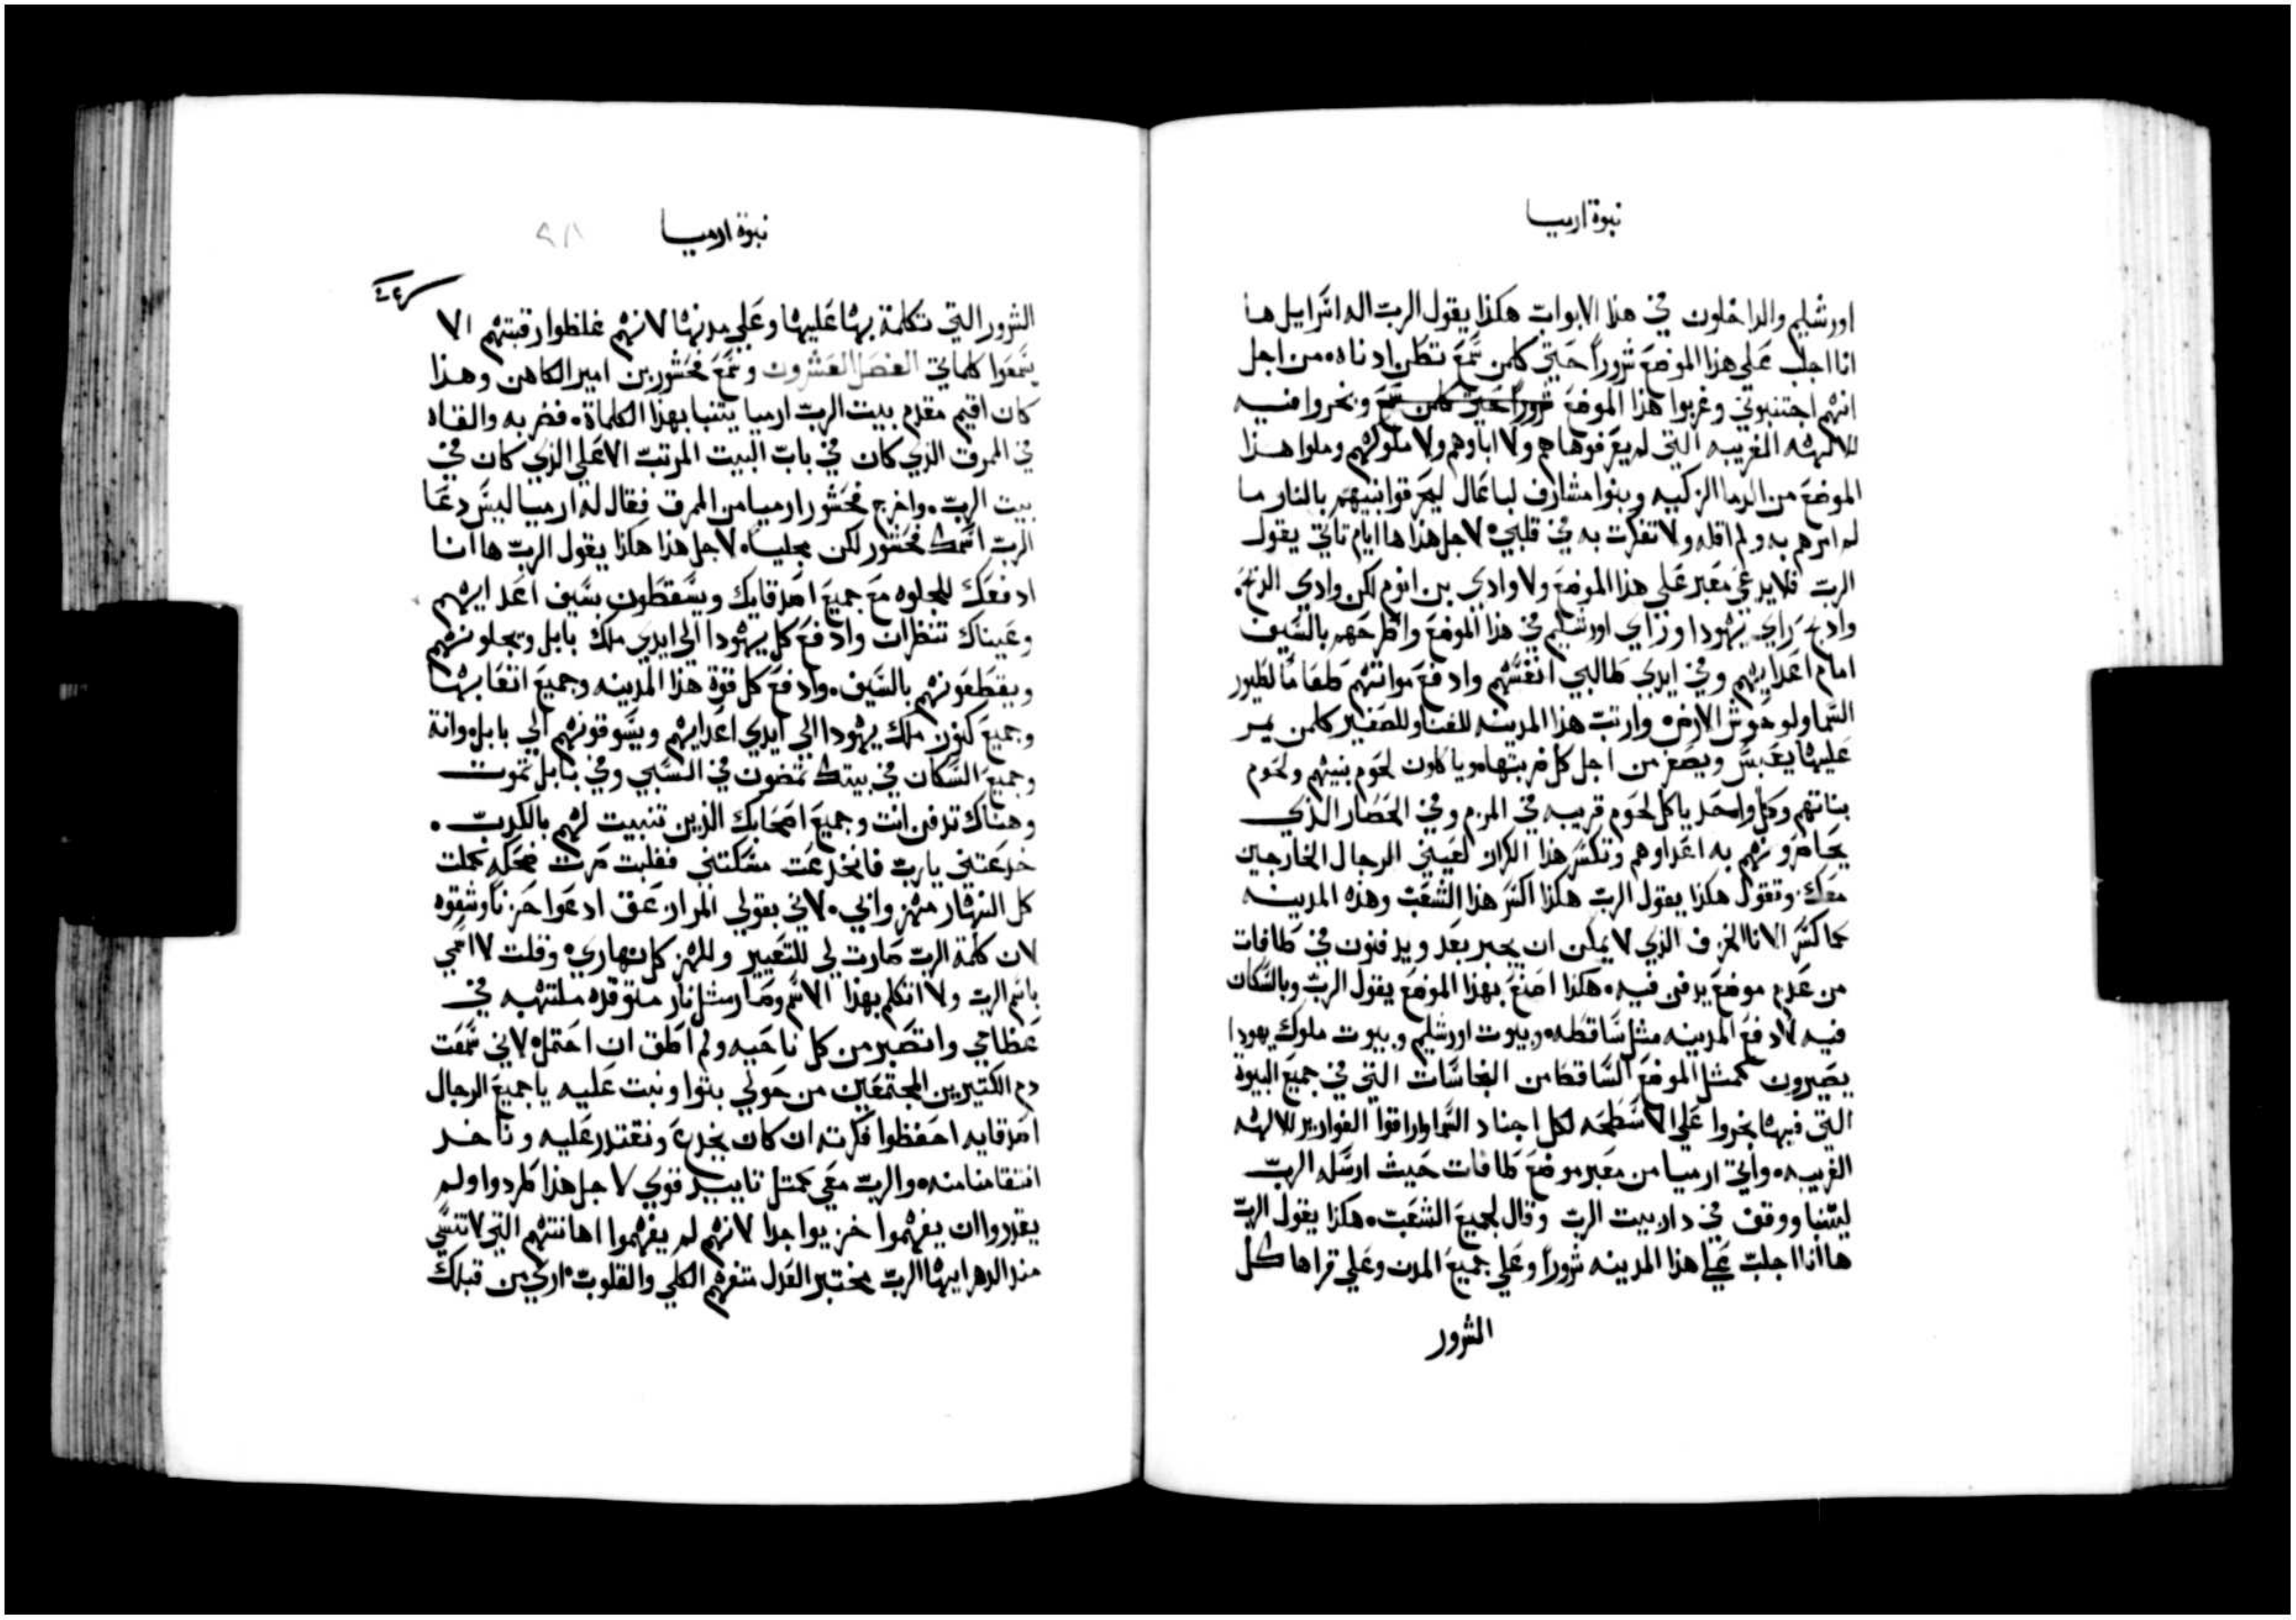 نبوة ارميا
اورشليم والداخلون في هذا الابواب هكذا يقول الرب اله اسراييل ها
انا اجلب على هذا الموضع شروراً حتى كلمن سمع تطن ادناه من اجل
انهم اجتنبوني وغربوا هذا الموضع شروراً حتى كلمن سمع وبخروا فيه
للالهه الغريبه التي لم يعرفوها هم ولا اباوهم ولا ملوكهم وملوا هذا
الموضع من الدما الزكيه وبنوا مشارف لباعال ليحرقوا بنيهم بالنار ما
لم امرهم به ولم اقله ولا تفكرت به في قلبي لاجل هذا ها ايام تاتي يقول
الرب فلا يدعي معبر علي هذا الموضع ولا وادي بن انوم لكن وادي الذبح
وادبح راي يهودا وراي اورشليم في هذا الموضع واطرحهم بالسيف
امام اعدايهم وفي ايدي طالبي انفسهم وادفع مواتتهم طعاماً لطيور
السما ولوحوش الارض وارتب هذا المدينه للفنا وللصفير كلمن يمر
عليها يعبس ويصفر من اجل كل ضربتها وياكلون لحوم بنيهم ولحوم
بناتهم وكل واحد ياكل لحوم قريبه في المزم وفي الحصار الذي
يحاصرونهم به اعداوهم وتكسر هذا الكراز لعيني الرجال الخارجين
معك وتقول هكذا يقول الرب هكذا اكسر هذا الشعب وهذه المدينه
كما كسر الانا الخزف الذي لا يمكن ان يجبر بعد ويدفنون في طافات
من عدم موضع يدفن فيه هكذا اصنع بهذا الموضع يقول الرب وبالسكان
فيه لادفع المدينه مثل ساقطه وبيوت اورشليم وبيوت ملوك يهودا
يصيرون كمثل الموضع الساقط من النجاسات التي في جميع البيوة
التي فيها بخروا علي الاسطحه لكل اجناد السما واراقوا القوارير للالهه
الغريبه واتي ارميا من معبر موضع طافات حيث ارسله الرب
ليتنبا ووقف في دار بيت الرب وقال لجميع الشعب هكذا يقول الرب
ها انا اجلب علي هذا المدينه شروراً وعلي جميع المدن وعلي قراها كل
الشرور
نبوة ارميا
الشرور التي تكلمة بها عليها وعلي مدنها لانهم غلظوا رقبتهم الا
يسمعوا كلماتي الفصل العشرون وسمع فحشور بن امير الكاهن وهذا
كان اقيم مقدم بيت الرب ارميا يتنبا بهذا الكلماة فضربه والقاه
في الممرق الذي كان في باب البيت المرتب الاعلي الذي كان في
بيت الرب واخرج فحشور ارميا من الممرق فقال له ارميا ليس دعا
الرب اسمك فحشور لكن مجليا لاجل هذا هكذا يقول الرب ها انا
ادفعك للجلوه مع جميع اصدقايك ويسقطون بسيف اعدايهم
وعيناك تنظران وادفع كل يهودا الي ايدي ملك بابل ويجلونهم
ويقطعونهم بالسيف وادفع كل قوة هذا المدينه وجميع اتعابها
وجميع كنوز ملك يهودا الي ايدي اعدايهم ويسوقونهم الي بابل وانة
وجميع السكان في بيتك تمضون في السبي وفي بابل تموت
وهناك تدفن انت وجميع اصحابك الذين تنبيت لهم بالكدب
خدعتني يا رب فانخدعت مسكتني فغلبت صرت ضحكه كملت
كل النهار مهزواني لاني بقولي المرار نعق ادعوا حزناً وشقوه
لان كلمة الرب صارت لي للتعيير وللهزر كل نهاري وقلت لا اسمي
باسم الرب ولا اتكلم بهذا الاسم وصار مثل نار متوقده ملتهبه في
عظامي وانتصبر من كل ناحيه ولم اطق ان احتمل لاني سمعت
دم الكتيرين المجتمعين من حولي بتوا ونبت عليه يا جميع الرجال
اصدقايه احفظوا فكرته ان كان يخدع ونقتدر عليه وناخد
انتقامنا منه والرب معي كمثل تاييد قوي لاجل هذا طردوا ولم
يقدروا ان يفهموا خزيوا جدا لانهم لم يفهموا اهانتهم التي لا تنسي
مند الدهر ايها الرب مختبر العدل متفهم الكلي والقلوب اري من قبلك